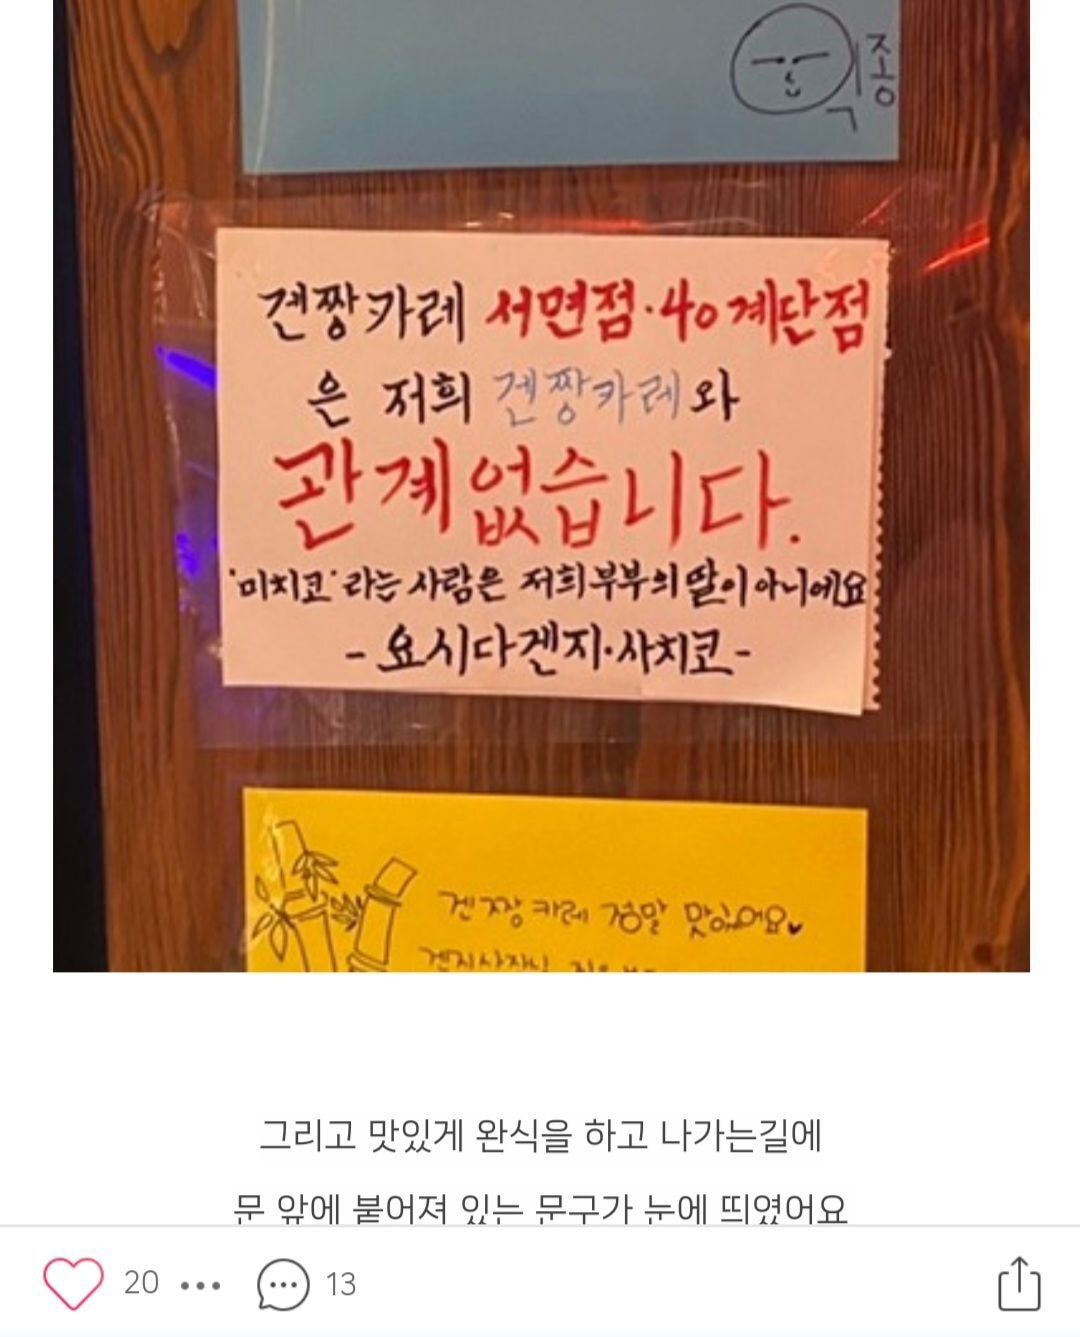 종
겐짱카레 서면점·40계단점
은 저희 겐짱카레와
관계없습니다.
'미치코'라는 사람은 저희부부의 딸이아니에요
- 요시다겐지·사치코 -
겐짱카레 정말 맛있어요
그리고 맛있게 완식을 하고 나가는길에
문 앞에 붙어져 있는 문구가 눈에 띄였어요
20
13